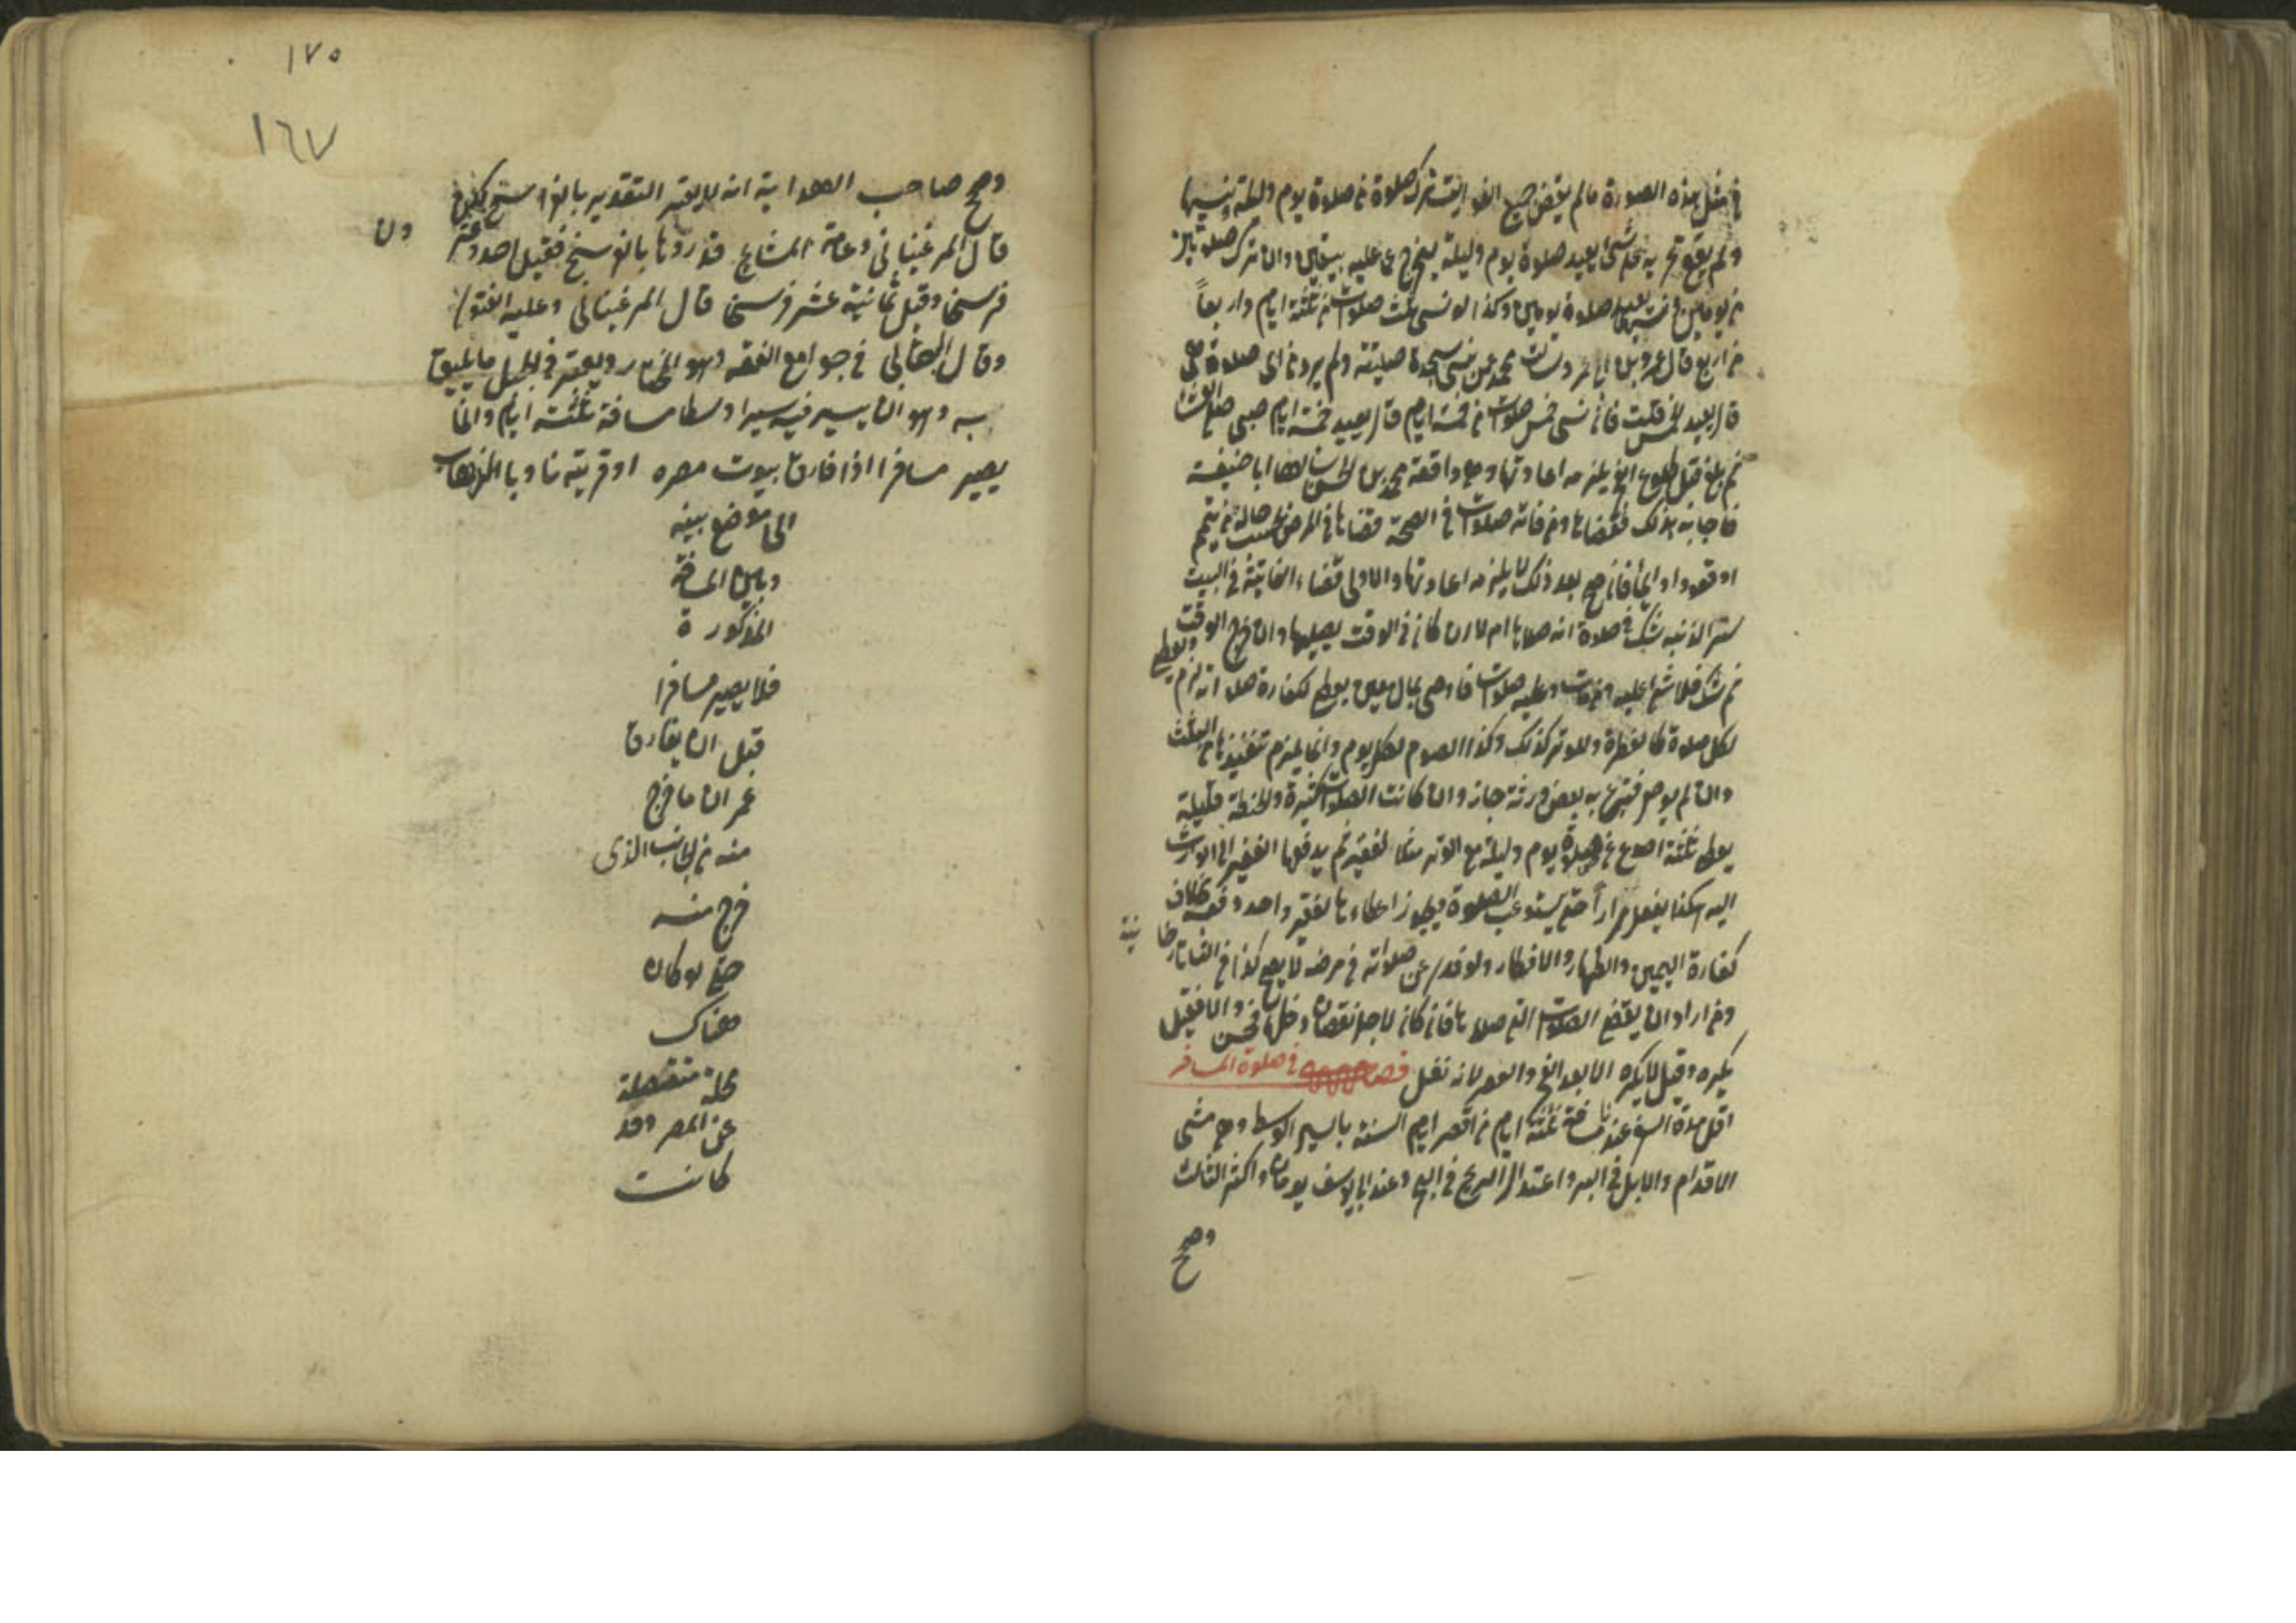 في مثل هذه الصورة ما لم يقض جميع الفوايت ترك صلوة من صلوة يوم وليلة ونسيها
ولم يقع تحريه على شئ يعيد صلوة يوم وليلة ليخرج عما عليه بيقين وان ترك صلوتين
من يومين صلوة يومين وكذا لو نسي ثلث صلوات من ثلثة ايام واربعا
من اربع قال عمرو بن ابي عمرو سألت محمدا عمن نسي سجدة صلبية ولم يدر من اي صلوة هي
قال يعيد الخمس قلت فان نسي خمس صلوات من خمسة ايام قال يعيد خمسة ايام صبي صلى العشا
ثم بلغ قبل طلوع الفجر يلزمه اعادتها وهي واقعة محمد بن الحسن سالها ابا حنيفة
فاجابه بذلك فقضاها ومن فاتته صلوات في الصحة فقضاها في المرض بحسب حاله من تيمم
او قعود او ايماء فان صح بعد ذلك لا يلزمه اعادتها والاولى قضاء الفايتة في البيت
سترا لذنبه شك في صلوة انه صلاها ام لا ان كان في الوقت يصليها وان خرج الوقت
ثم شك فلا شئ عليه ومن مات وعليه صلوات فاوصى بمال معين يعطى لكفارة صلواته لزم
ويعطى
لكل صلوة كالفطرة وللوتر كذلك وكذا الصوم لكل يوم وانما يلزم تنفيذها من الثلث
وان لم يوص فتبرع به بعض ورثته جاز وان كانت الصلوات كثيرة والحنطة قليلة
يعطى ثلثة اصوع عن صلوة يوم وليلة مع الوتر مثلا لفقير ثم يدفعها الفقير الى الوارث
اليه هكذا يفعل مرارا حتى يستوعب الصلوة ويجوز اعطاءها لفقير واحد دفعة بخلاف
كفارة اليمين والظهار والافطار ولو فدى عن صلواته في مرضه لا يصح كذا في التاتارخا
نية
ومن اراد ان يقضي الصلوات التي صلاها فان كان لاجل نقصان دخلها فحسن والا فقيل
يكره وقيل لا يكره الا بعد الفجر والعصر لانه نفل فصل في صلوة المسافر
اقل مدة السفر عندنا مسافة ثلثة ايام من اقصر ايام السنة بالسير الوسط وهو مشي
الاقدام والابل في البر واعتدال الريح في البحر وعند ابي يوسف يومان واكثر الثالث
وصحح
١٧٥
١٦٧
وصحح صاحب الهداية انه لا يعتبر التقدير بالفراسخ
قال المرغيناني وعامة المشايخ قدروها بالفراسخ فقيل احد وعشر
ون
فرسخا وقيل ثمانية عشر فرسخا قال المرغيناني وعليه الفتوى
وقال البقالي في جوامع الفقه وهو المختار ويعتبر في الجبل ما يليق
به وهو ان يسير فيه سيرا وسطا مسافة ثلثة ايام وانما
يصير مسافرا اذا فارق بيوت مصره او قريته ناويا الذهاب
الى موضع بينه
وبين المسافة
المذكورة
فلا يصير مسافرا
قبل ان يفارق
عمران ما خرج
منه من الجانب الذى
خرج منه
حتى لو كان
هناك
محلة منفصلة
عن المصر وقد
كانت